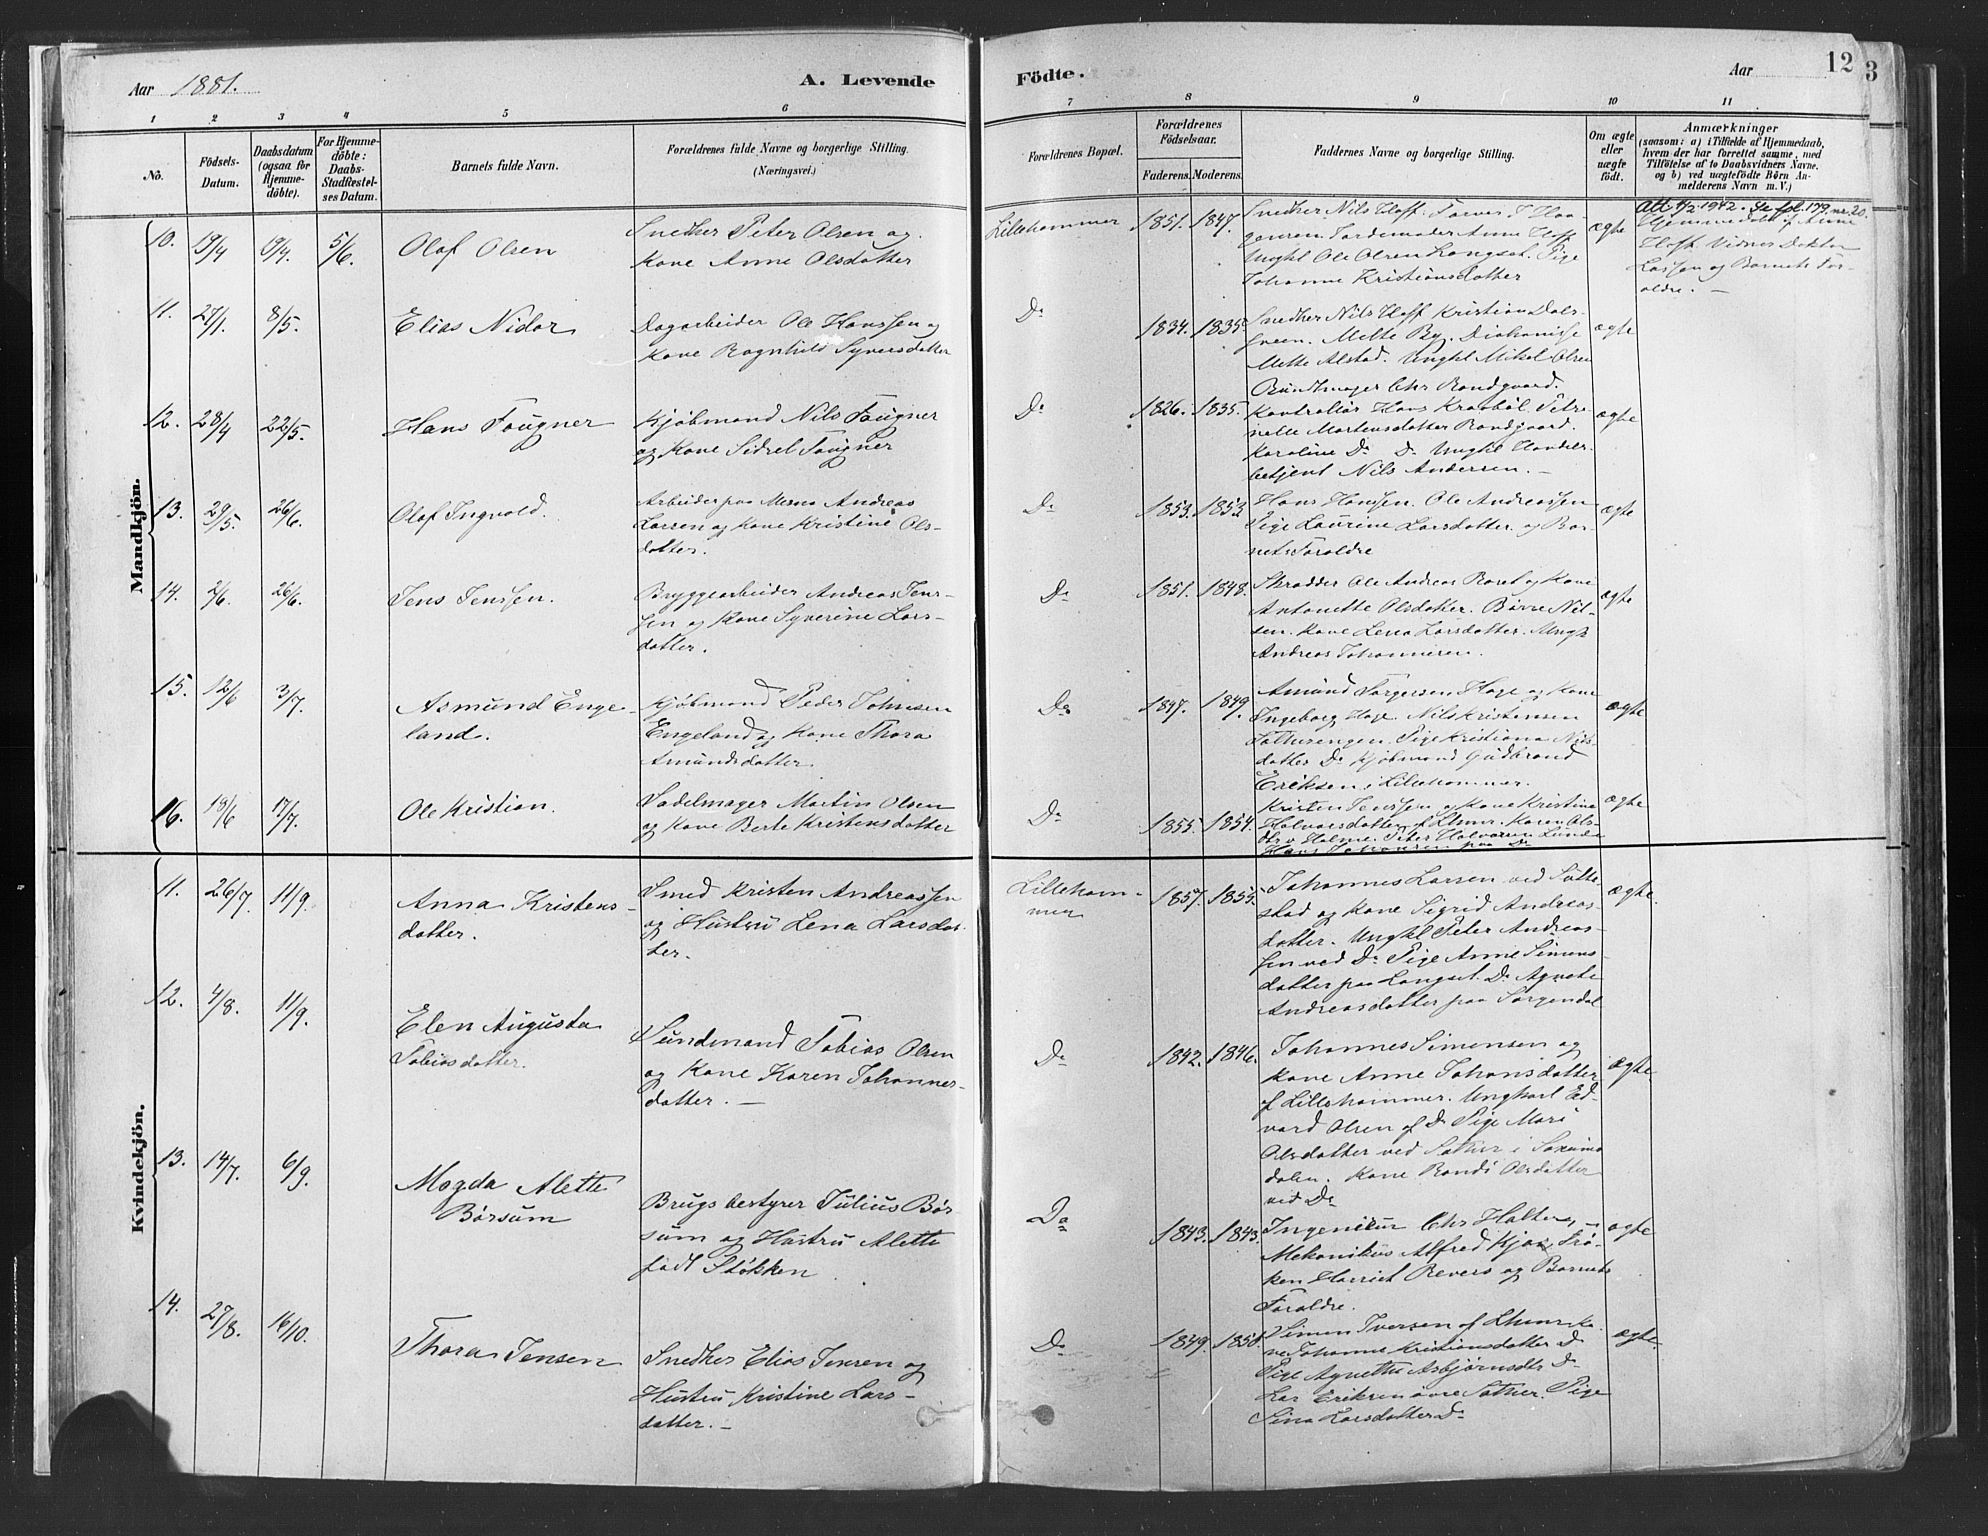 Aar 1881.
A. Levende
Födte.
Aar
12
3
1 2 3 4 5 6 7 8 9 10 11
No.
Födsels-Datum.
Daabsdatum (ogsaa for Hjemme-döbte).
For Hjemme-döbte: Daabs-Stadfæstel-ses Datum.
Barnets fulde Navn.
Forældrenes fulde Navne og borgerlige Stilling. (Næringsvei.)
Forældrenes Bopæl.
Forældrenes Födselsaar.
Faderens. Moderens.
Faddernes Navne og borgerlige Stilling.
Om ægte eller uægte födt.
Anmærkninger
(saasom: a) i Tilfælde af Hjemmedaab,
hvem der har forrettet samme, med
Tilföielse af to Daabsvidners Navne,
og b) ved uægtefödte Börn An-
melderens Navn m. V.)
Mandkjön.
10. 19/4 19/4. 5/6.
Olaf Olsen
Snedker Peter Olsen og
Kone Anne Olsdatter
Lillehammer 1851. 1847.
Snedker Nils Hoff.
Jordemoder Anne Hoff
Ungkl Ole Olsen Langset. Pige
Johanne Kristiansdatter
ægte
Att 4/2 1942. Se fol. 179. nr. 20.
Hoff. Vidner Doktor
Lassen og Barnets For-
ældre. —
11. 27/1. 8/5.
Elias Nidar
Dagarbeider Ole Hanssen og
Kone Ragnhild Syversdatter
Do 1834. 1835.
Snedker Nils Hoff Kristian Dals-
green. Mette By. Diakonisse
Mette Alstad. Ungkl Mikal Olsen
ægte
12. 28/4 22/5.
Hans Fougner
Kjøbmand Nils Fougner
og Kone Sidsel Fougner
Do 1826. 1835.
Bundtmager Chr Rondgaard.
Kontrollør Hans Kravbøl. Petre-
nelle Mortensdatter Rondgaard.
Karoline Do Do Ungkl Handels-
betjent Nils Andersen. —
ægte
13. 29/5 26/6.
Olaf Ingvold.
Arbeider paa Mesna Andreas
Larsen og Kone Kristine Ols-
datter.
Do 1853. 1853
Hans Hanssen. Ole Andreassen
Pige Laurine Larsdatter og Bar-
nets Forældre
ægte
14. 2/6. 26/6.
Jens Jenssen.
Bryggearbeider Andreas Jens-
sen og Kone Syverine Lars-
datter.
Do 1851. 1848.
Skrædder Ole Andreas Roset og Kone
Antonette Olsdatter. Børre Nil-
sen. Kone Lena Larsdatter. Ungk
Andreas Johannesen.
ægte
15. 12/6 3/7.
Asmund Enge-
land.
Kjøbmand Peder Johnsen
Engeland og Kone Thora
Amundsdatter.
Do 1847. 1849.
Amund Torgersen Hage og Kone
Ingeborg Hage. Nils Kristensen
Pige Kristiana Nils-
datter Do Kjøbmand Gudbrand
Eriksen i Lillehammer.
ægte
16. 18/6 17/7.
Ole Kristian.
Sadelmager Martin Olsen
og Kone Berte Kristensdatter
Do 1855. 1854.
Kristen Jenssen og Kone Kristine
Halvorsdatter af Lhmr. Karen Ols-
Peter Halvorsen Lunde
Hans Johansen paa Do
ægte
Kvindekjön.
11. 26/7. 11/9.
Anna Kristens-
datter.
Smed Kristen Andreassen
og Hustru Lena Larsdat-
ter.
Lilleham-
mer 1857. 1855.
Johannes Larsen ved Sætte-
stad og Kone Sigrid Andreas-
datter. Ungkl Peter Andreas-
sen ved Do Pige Anne Simens-
datter paa Langset. Do Agnete
Andreasdatter paa Sorgendal
ægte.
12. 4/8. 11/9.
Elen Augusta
Tobiasdatter.
Sundmand Tobias Olsen
og Kone Karen Johannes-
datter. —
Do 1842. 1846.
Johannes Simensen og
Kone Anne Johansdatter
af Lillehammer. Ungkarl Ed-
vard Olsen af Do Pige Mari
Olsdatter ved Sæther i Saxum-
dalen. Kone Randi Olsdatter
ved Do
ægte
13. 14/7. 6/9.
Magda Alette
Børsum
Brugsbestyrer Julius Bør-
sum og Hustru Alette
født Støkken
Do 1843. 1843.
Ingeniør Chr Holter, —
Mekanikus Alfred Kjær, Frø-
ken Harriet Revers og Barnets
Forældre.
ægte
14. 27/8. 16/10.
Thora Jensen
Snedker Elias Jensen og
Hustru Kristine Lars-
datter. —
Do 1849. 1858.
Simen Iversen af Lhmr. Ko-
ne Johanne Kristiansdatter Do
Pige Agnethe Asbjørnsdtr Do
Lars Eriksen øvre Sæther. Pige
Sina Larsdatter Do
ægte.